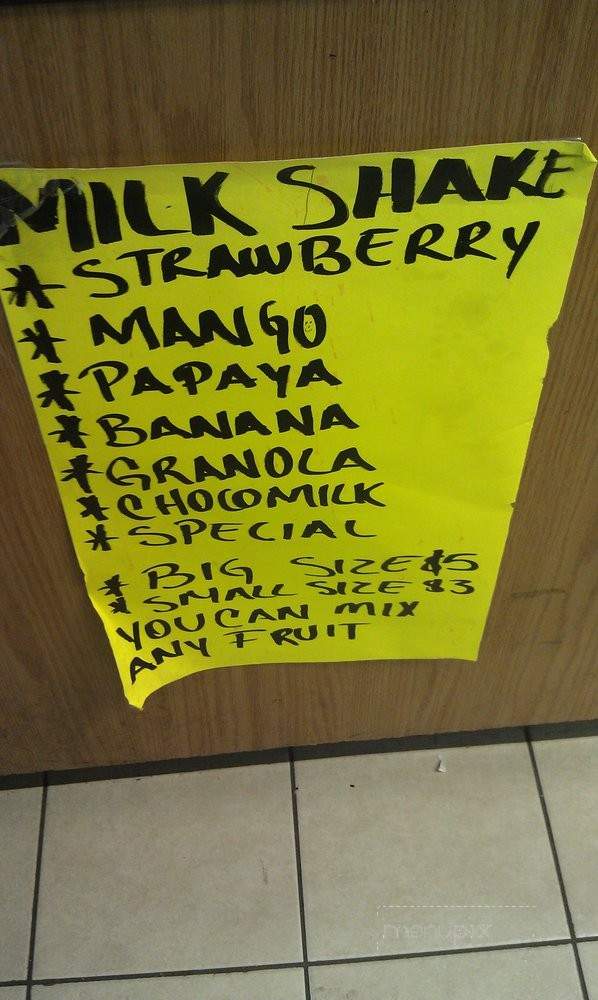 MILK SHAKE
* STRAWBERRY
* MANGO
* PAPAYA
* BANANA
* GRANOLA
* CHOCOMILK
* SPECIAL
* BIG SIZE $5
* SMALL SIZE $3
YOU CAN MIX
ANY FRUIT
menupix